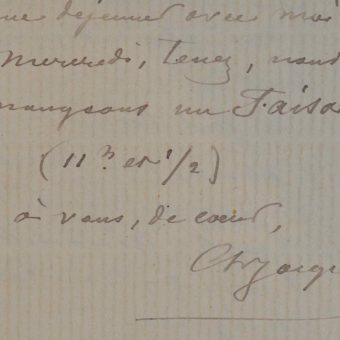 me déjeuner avec moi
Mercredi, tenez, nous
mangeons un Faisa
(11h et 1/2)
à vous, de cœur,
Ch Jacqu